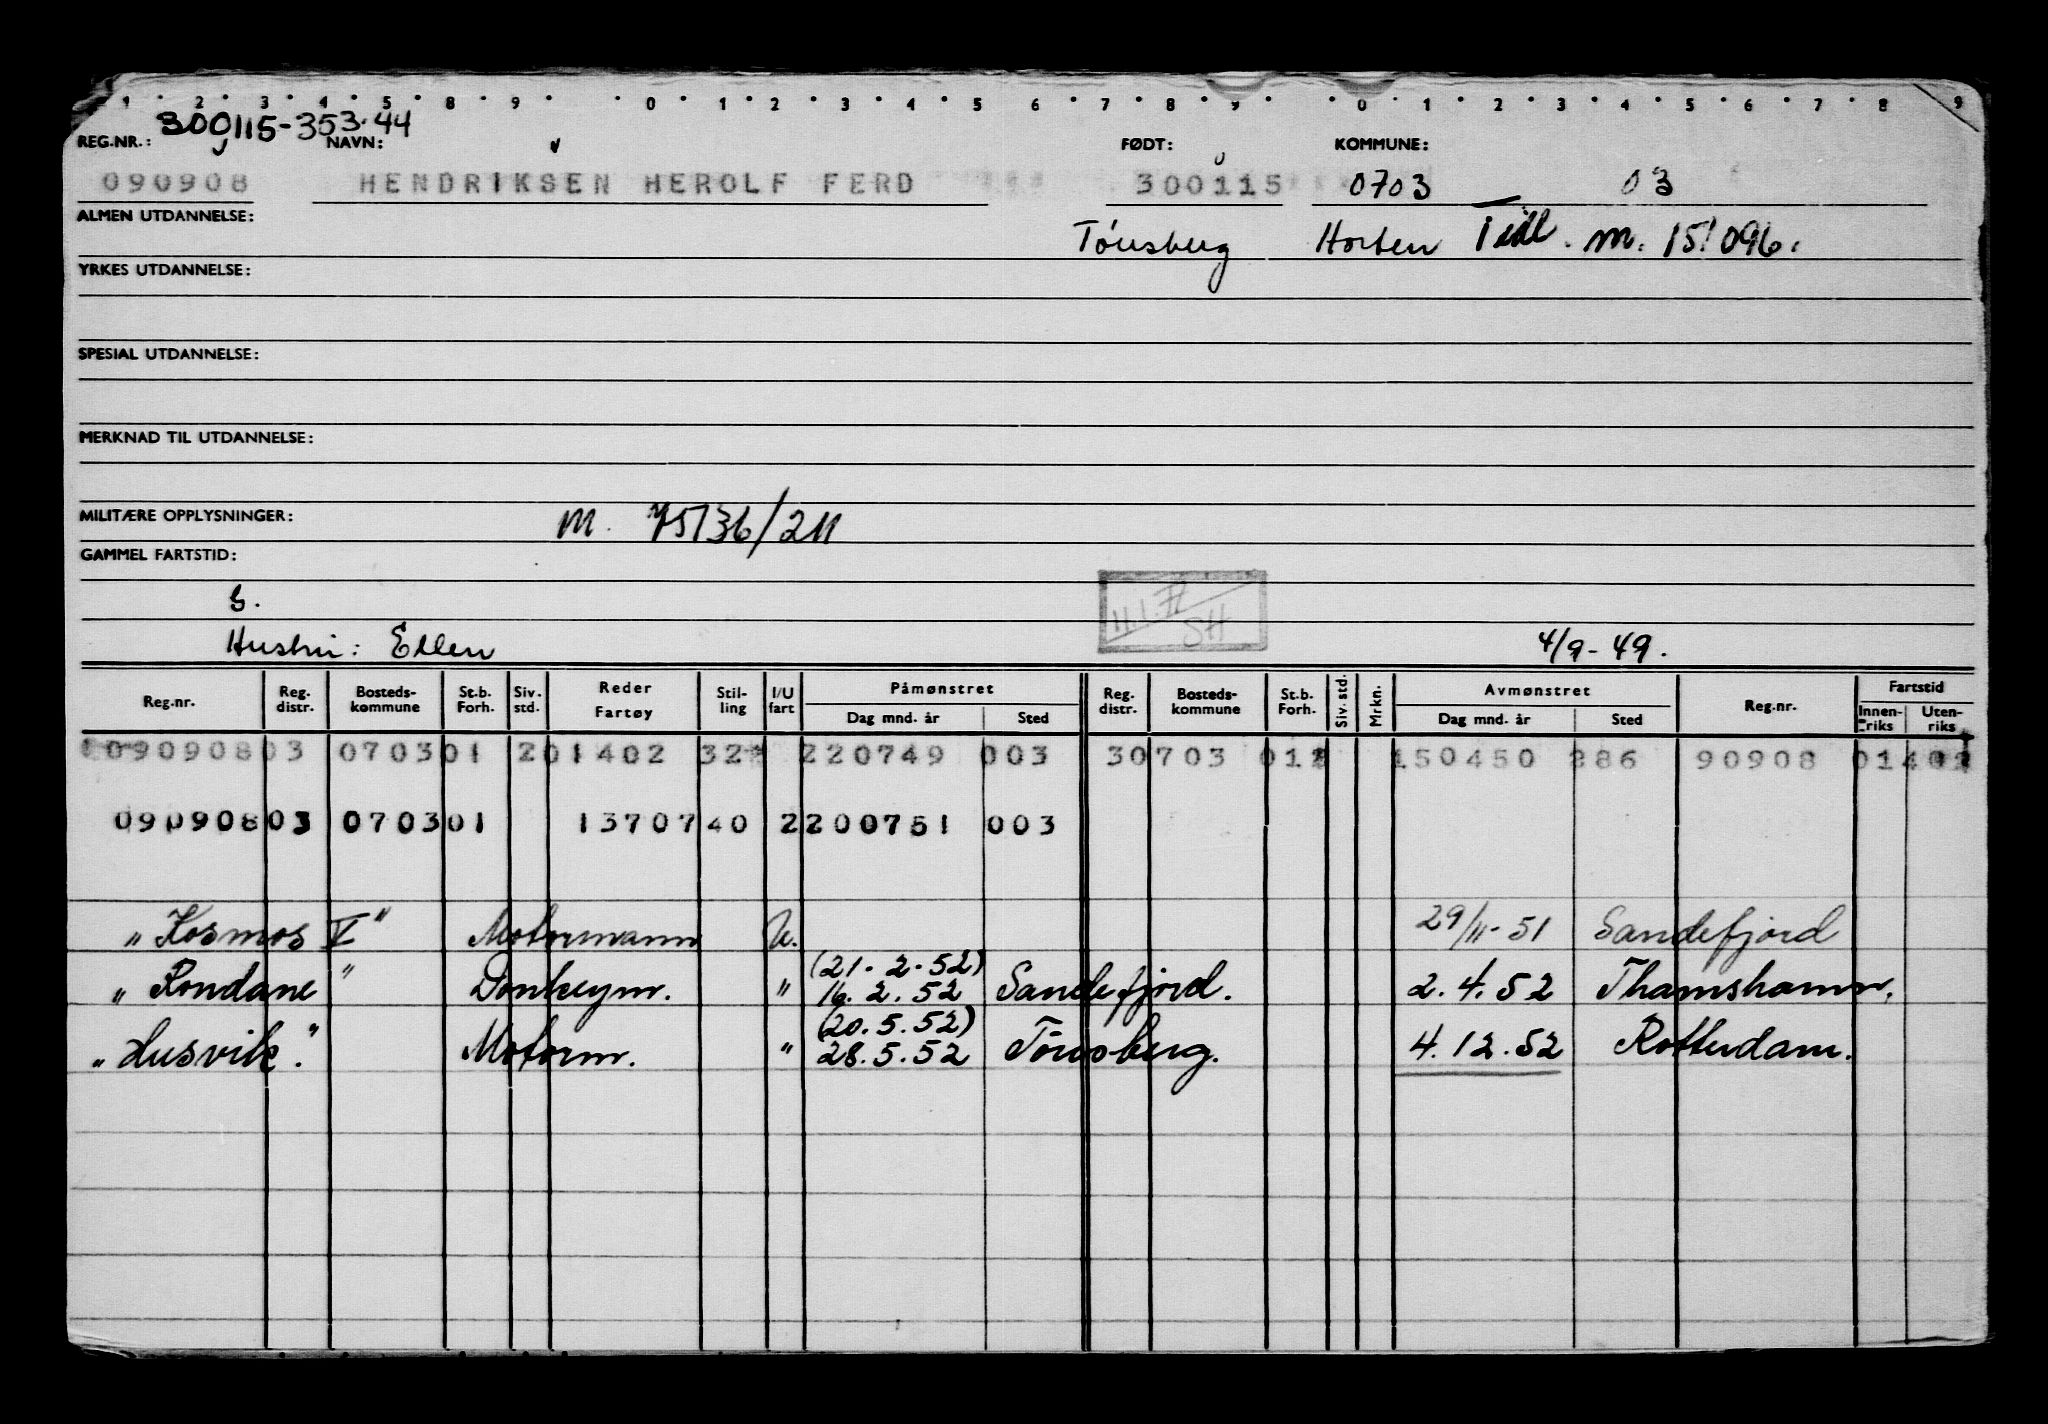 1 2 3 4 5 8 9 0 1 2 3 4 5 6 7 8 9 0 1 2 3 4 5 6 7 8 9
300115-353.44
REG.NR.: NAVN: FØDT: KOMMUNE:
090908 HENDRIKSEN HEROLF FERD 300115 0703 03
ALMEN UTDANNELSE:
Tönsberg Horten Tidl. m. 15! 096.
YRKES UTDANNELSE:
SPESIAL UTDANNELSE:
MERKNAD TIL UTDANNELSE:
MILITÆRE OPPLYSNINGER: M. 75136/211
GAMMEL FARTSTID:
G.
SH
Hustru: Ellen 4/9-49.
Reg.nr. Reg. distr. Bosteds-kommune St.b. Forh. Siv. std. Reder Fartøy Stil-ling I/U fart Påmønstret Dag mnd. år Sted Reg. distr. Bosteds-kommune St.b. Forh. Siv. std. Mrkn. Avmønstret Dag mnd. år Sted Reg.nr. Fartstid Innen-riks Uten-riks
09090803 070301 201402 32 220749 003 30703 01 150450 286 90908 01402
09090803 070301 13707 40 2200751 003
"Kosmos V" Motormann U. 29/11-51 Sandefjord
(21-2-52)
"Rondane" Donkeym. " 16.2.52 Sandefjord. 2.4.52 Thamshamn.
(20.5.52)
"Husvik." Motorm. " 28.5.52 Tönsberg. 4.12.52 Rotterdam.